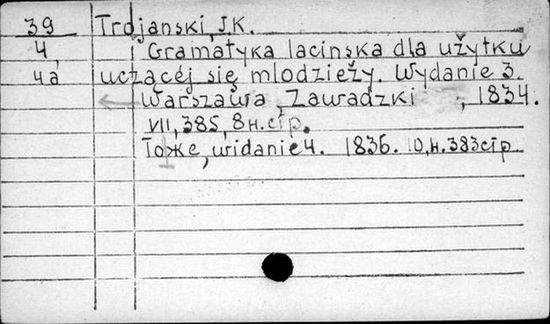 39 Trojanski, J.K.
4, Gramatyka lacinska dla užytku
4a uczącéj się mlodziežy. Wydanie 3.
Warszawa, Zawadzki , 1834.
VII, 385, 8 н. стр.
Тоже, widanie 4. 1836. 10, н. 383 стр